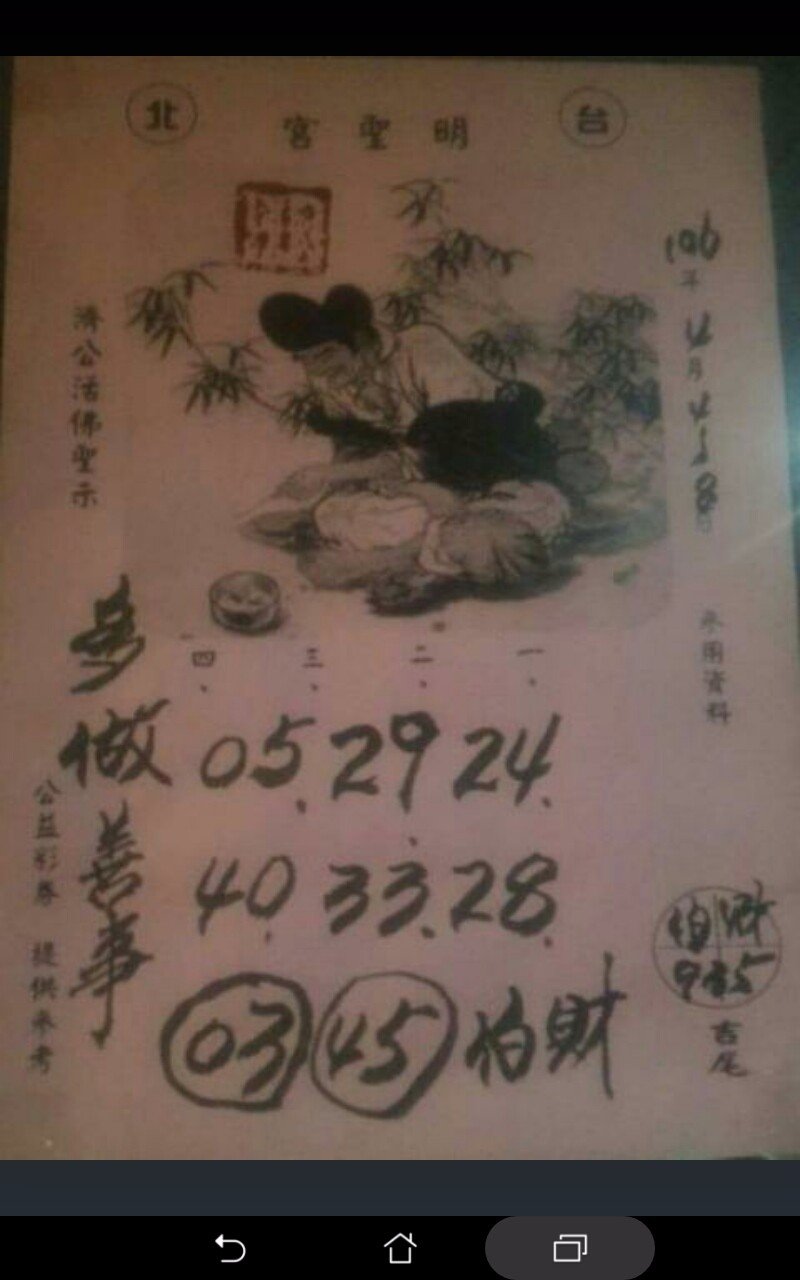 台北
明聖宮
106年4月4日8
參用資料
一、二、三、四、
24. 29 05.
28. 33. 40.
財
03 45
多做善事
濟公活佛聖示
公益彩券 提供參考
財
吉尾